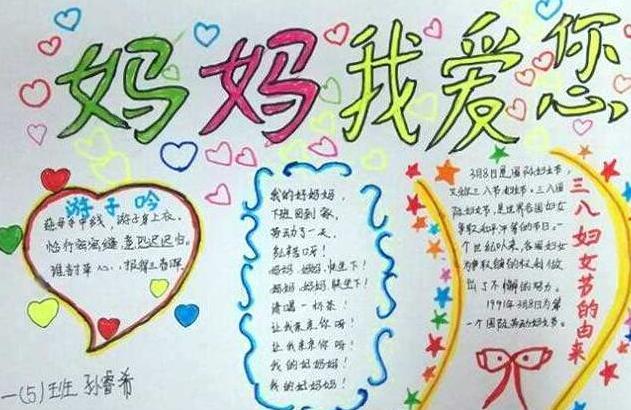 妈妈我爱您
游子吟
慈母手中线,游子身上衣。
临行密密缝意恐迟迟归。
谁言寸草心,报得三春晖
一(5)班 孙睿希
我的好妈妈,
下班回到家,
劳动了一天,
多么辛苦呀!
妈妈、妈妈、快坐下!
妈妈、妈妈、快坐下!
请喝一杯茶!
让我亲亲你呀!
让我亲亲你呀!
我的好妈妈!
我的好妈妈!
3月8日是国际妇女节,
又称三八节妇女节。三八国
际妇女节,是世界各国妇女
争取和平平等的节日。一
个世纪以来,各国妇女
为争取她们的权利做
出了不懈的努力。
1991年3月8日为第
一个国际劳动妇女节。
三八妇女节的由来